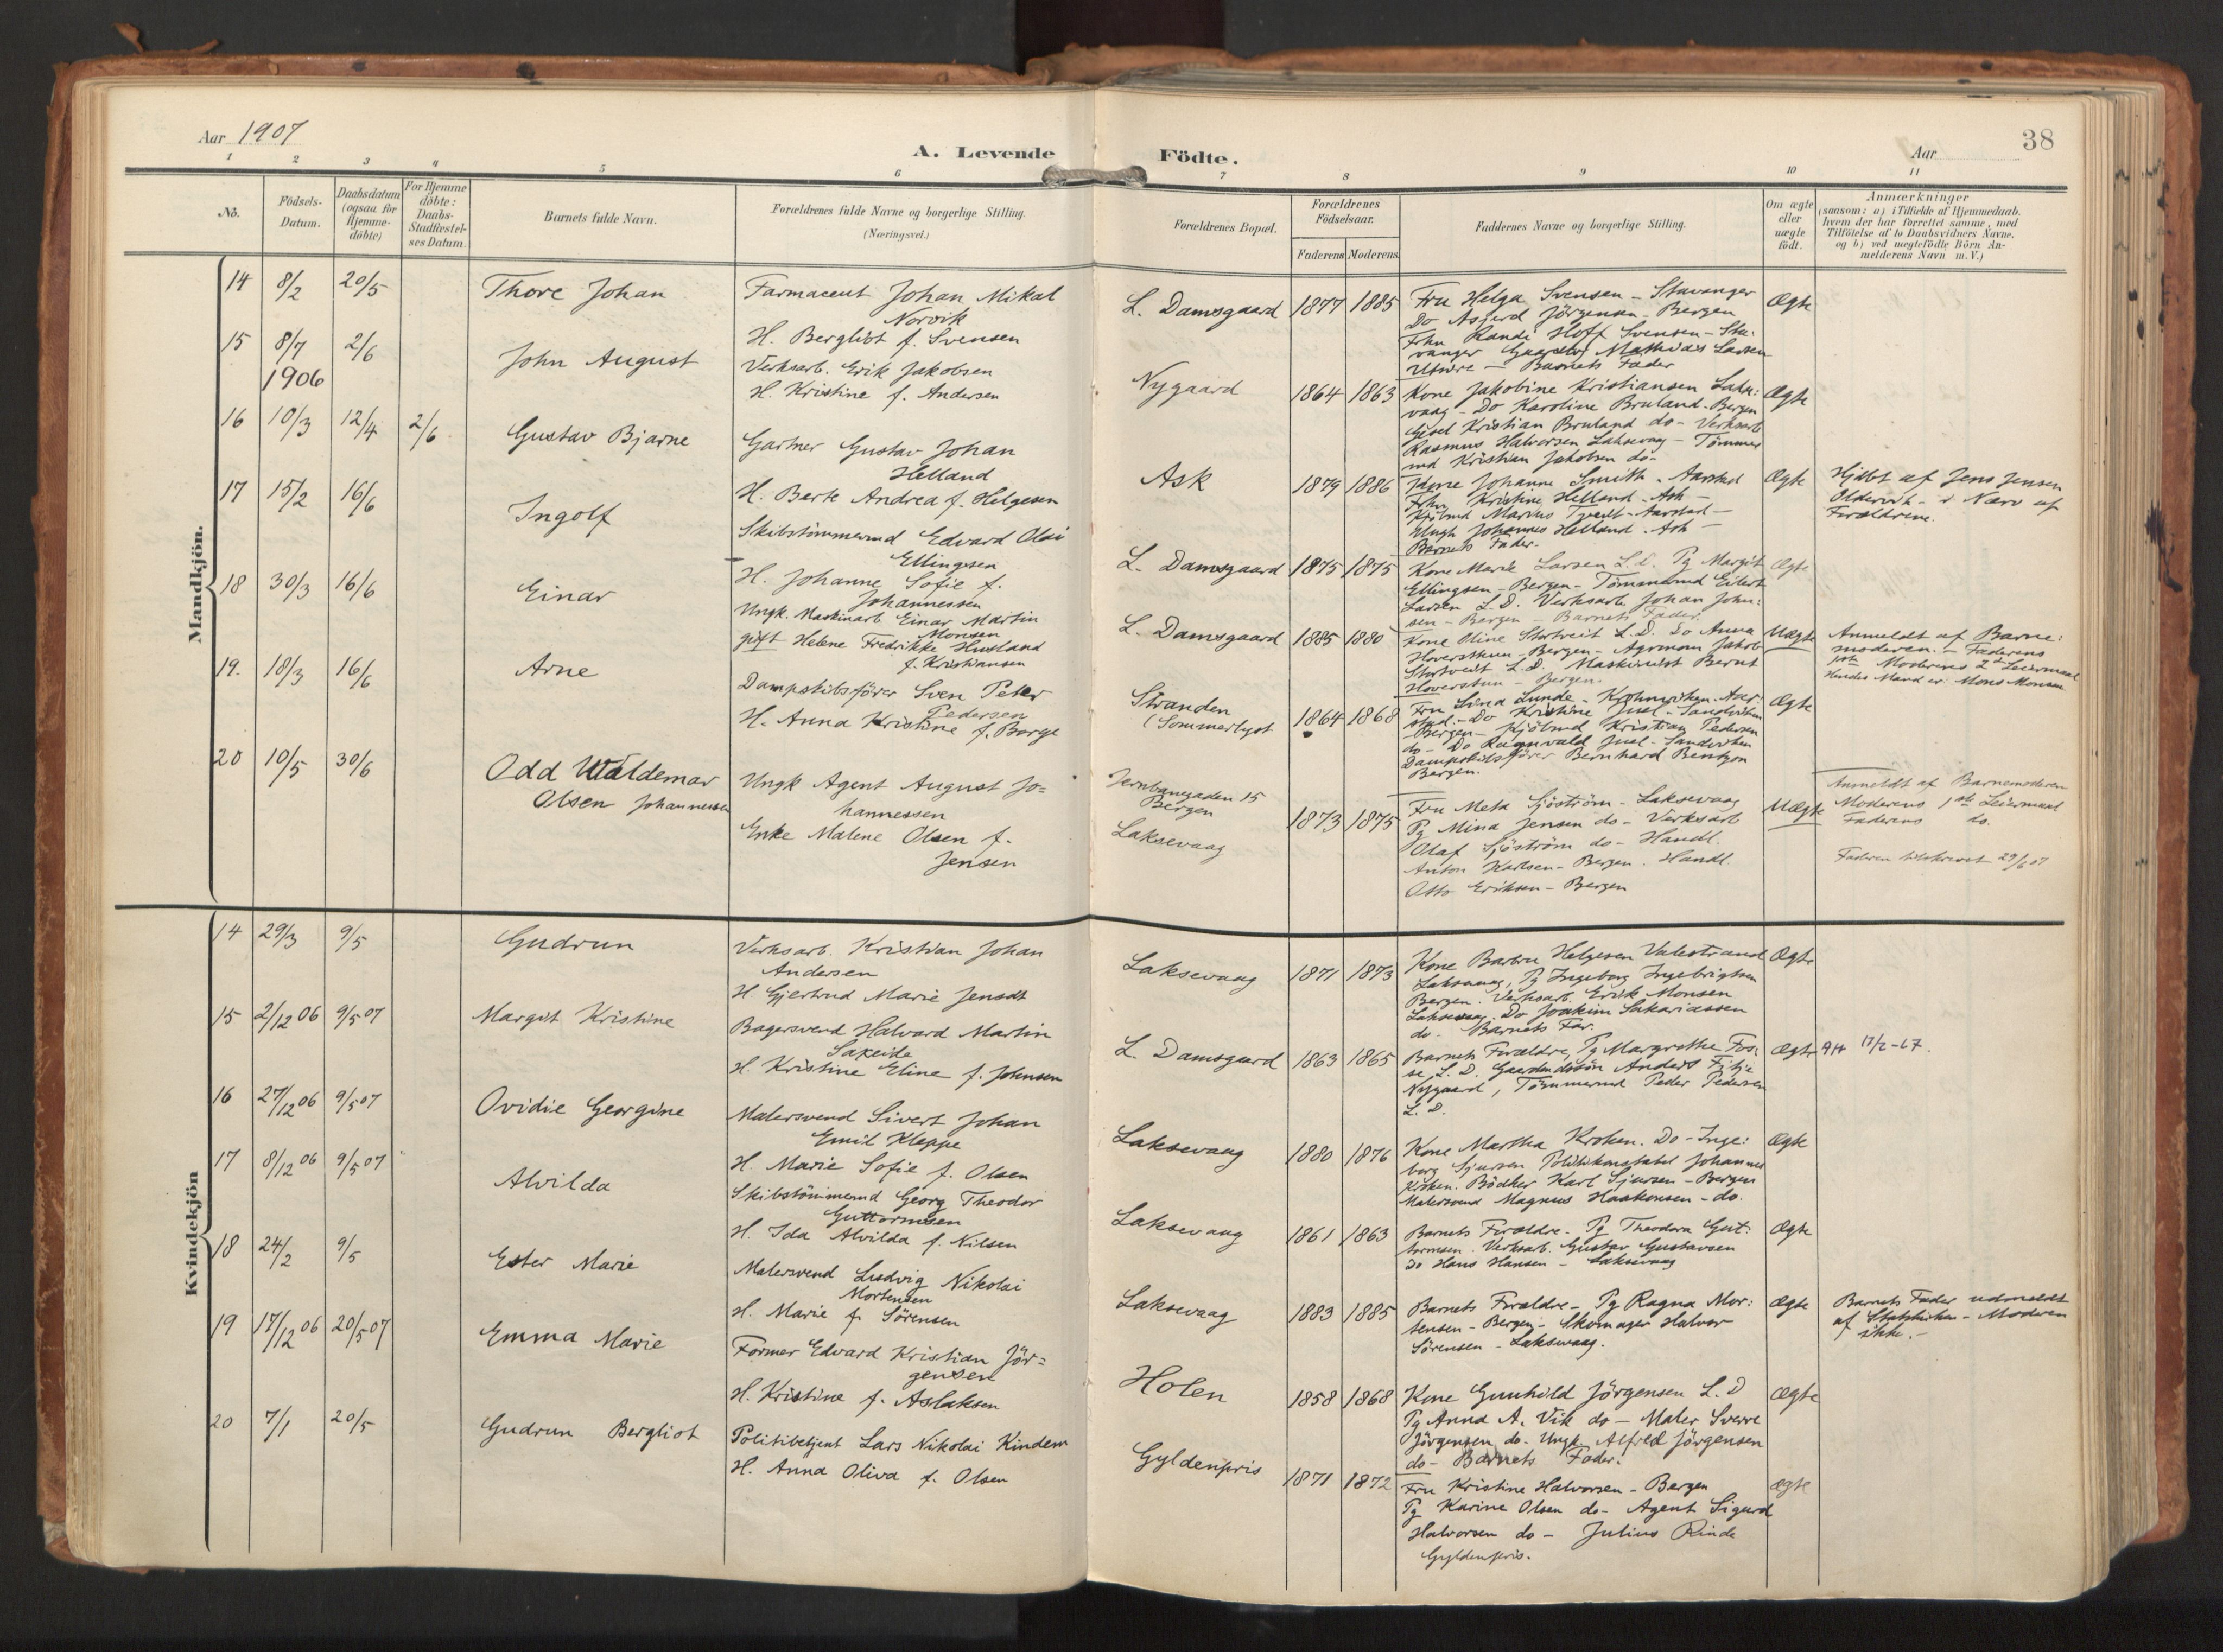 Aar 1907
A. Levende Födte.
Aar
38
1 2 3 4 5 6 7 8 9 10 11
No.
Födsels-
Datum.
Daabsdatum
(ogsaa for
Hjemme-
döbte)
For Hjemme
döbte:
Daabs-
Stadfæstel-
ses Datum.
Barnets fulde Navn.
Forældrenes fulde Navne og borgerlige Stilling.
(Næringsvei.)
Forældrenes Bopæl.
Forældrenes
Födselsaar.
Faderens Moderens
Faddernes Navne og borgerlige Stilling.
Om ægte
eller
uægte
födt.
Anmærkninger
(saasom: a) i Tilfælde af Hjemmedaab.
hvem der har forrettet samme, med
Tilföielse af to Daabsvidners Navne,
og b) ved uægtefödte Börn An-
melderens Navn m. V.)
Mandkjön.
14 8/2 20/5 Thore Johan
Farmaceut Johan Mikal
Norvik
H. Bergliot f. Svensen
L. Damsgaard 1877 1885
Fru Helga Svensen - Stavanger
Do Asjerd Jörgensen - Bergen
Frkn Randi Hoff Svensen - Sta:
vanger Mathias Larsen
- Barnets Fader
Ægte
15 8/7 1906 2/6 John August
Verksarb. Erik Jakobsen
H. Kristine f. Andersen
Nygaard 1864 1863
Kone Jakobine Kristiansen Laks:
vaag - Do Karoline Bruland - Bergen
Kristian Bruland do - Verksarb
Rasmus Halvorsen Laksevaag - Tömmer
md Kristian Jakobsen do -
Ægte
16 10/3 12/4 2/6 Gustav Bjarne
Gartner Gustav Johan
Helland
H. Berte Andrea f. Helgesen
Ask 1879 1886
Johanne Smith - Aarstad
Frkn Kristine Helland - Ask -
Marius Tveit - Aarstad -
Ungk Johannes Helland - Ask -
Barnets Fader.
Ægte
Hjdöbt af Jens Jensen
- i Nærv af
Forældrene.
17 15/2 16/6 Ingolf
Skibstömmermd Edvard Olai
Ellingsen
H. Johanne Sofie f.
Johannessen
L. Damsgaard 1875 1875
Kone Marie Larsen L.D. Pg Margit
Ellingsen - Bergen - Tömmermd Eilert
Larsen L.D. Verksarb Johan John:
sen - Bergen - Barnets Fader.
Ægte
18 30/3 16/6 Einar
Ungk. Maskinarb Einar Martin
Monsen
gift Helene Fredrikke Husland
f. Kristiansen
L. Damsgaard 1885 1880
Kone Oline Stortveit L.D. Do Anna
- Bergen - Jakob
Stortveit L.D. Maskinist Bernt
- Bergen.
Uægte
Anmeldt af Barne:
moderen. - Faderens
1ste Moderens 2det Leiermaal
Hendes Mand er Mons Monsen
19. 18/3 16/6 Arne
Dampskibsförer Sven Peter
Pedersen
H. Anna Kristine f. Borge
Stranden
(Sommerlyst 1864 1868
Fru Lina Lunde - Aar:
stad. - Do Kristine Juel - Sandviken
- Bergen - Kjöbmd Kristian Pedersen
do - Do Ragnvald Juel - Sandviken
Dampskibsförer Bernhard Bentzon
Bergen.
Ægte
20 10/5 30/6 Odd Waldemar
Olsen Johannessen
Ungk Agent August Jo=
hannessen
Enke Malene Olsen f.
Jensen
Jernbanegaden 15
Bergen
Laksevaag
1873 1875
Fru Meta Sjöström - Laksevaag
Pg Mina Jensen do - Verksarb
Olaf Sjöström do - Handl.
Anton Karlsen - Bergen. Handl.
Otto Eriksen - Bergen
Uægte
Anmeldt af Barnemoderen
Moderens 1ste Leiermaal
Faderens do.
Faderen tilskrevet 29/6 07
Kvindekjön
14 29/3 9/5 Gudrun
Verksarb. Kristian Johan
Andersen
H. Gjertrud Marie Jensdt
Laksevaag 1871 1873
Kone Barbra Helgesen Valestrand
Laksevaag, Pg Ingeborg Ingebrigtsen
Bergen. Verksarb. Erik Monsen
Laksevaag. Do Joakim Sakariassen
do. Barnets Far.
Ægte
15 2/12 06 9/5 07 Margit Kristine
Bagersvend Halvard Martin
Sakeide
H. Kristine Eline f. Johnsen
L. Damsgaard 1863 1865
Barnets Forældre, Pg Margrethe Fos:
se, L.D. Anders Fitje
Nygaard, Tömmermd Peder Pedersen
L.D.
Ægte
17/2-27.
16 27/12 06 9/5 07 Ovidie Georgine
Malersvend Sivert Johan
Emil Kleppe
H. Marie Sofie f. Olsen
Laksevaag 1880 1876
Kone Martha Kroken. Do - Inge:
borg Sjursen Politikonstabel Johannes
Kroken. Bödker Karl Sjursen - Bergen
Malersvend Magnus Haakonsen - do.
Ægte
17 8/12 06 9/5 07 Alvilda
Skibstömmermd Georg Theodor
Guttormsen
H. Ida Alvilda f. Nilsen
Laksevaag 1861 1863
Barnets Forældre. Pg Theodora Gut:
tormsen. Verksarb. Gustav Gustavsen
Do Hans Hansen - Laksevaag
Ægte
18 24/2 9/5 Ester Marie
Malersvend Ludvig Nikolai
Mortensen
H. Marie f. Sörensen
Laksevaag 1883 1885
Barnets Forældre - Pg Ragna Mor:
tensen - Bergen - Skomager Halvor
Sörensen - Laksevaag.
Ægte
Barnets Fader udmeldt
af Statskirken - Moderen
ikke. -
19 17/12 06 20/5 07 Emma Marie
Former Edvard Kristian Jör=
gensen
H. Kristine f. Aslaksen
Holen 1858 1868
Kone Gunhild Jörgensen L.D
Pg Anna A. Vik do - Maler Sverre
Jörgensen do - Ungk Alfred Jörgensen
do - Barnets Fader.
Ægte
20 7/1 20/5 Gudrun Bergliot
Politibetjent Lars Nikolai Kindem
H. Anna Oliva f. Olsen
Gyldenpris 1871 1872
Fru Kristine Halvorsen - Bergen
Pg Karine Olsen do - Agent Sigurd
Halvorsen do - Julius Rinde
Gyldenpris.
Ægte